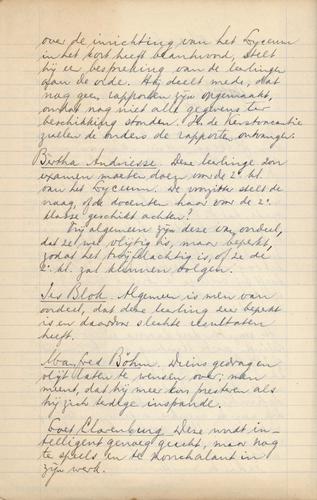 over de inrichting van het Lyceum
in het kort heeft beantwoord, stelt
hij een bespreking van de leerlingen
aan de orde. Hij deelt mede, dat
nog geen rapporten zijn opgemaakt,
omdat nog niet alle gegevens ter
beschikking stonden. In de kerstvacantie
zullen de ouders de rapporten ontvangen.
Bertha Andriesse. Deze leerlinge zou
examen moeten doen voor de 2e kl.
van het Lyceum. De voorzitter stelt de
vraag, of de docenten haar voor de 2e
klasse geschikt achten?
Vrij algemeen zijn deze van oordeel,
dat ze wel vlijtig is, maar beperkt,
zodat het twijfelachtig is, of ze de
2e kl. zal kunnen volgen.
Jes Blok. Algemeen is men van
oordeel, dat deze leerling zeer beperkt
is en daardoor slechte resultaten
heeft.
Manfred Böhm. Diens gedrag en
vlijt laten te wensen over; men
meent, dat hij meer kan presteren als
hij zich terdege inspande.
Coert Clarenburg. Deze wordt in-
telligent genoeg geacht, maar nog
te speels en te nonchalant in
zijn werk.